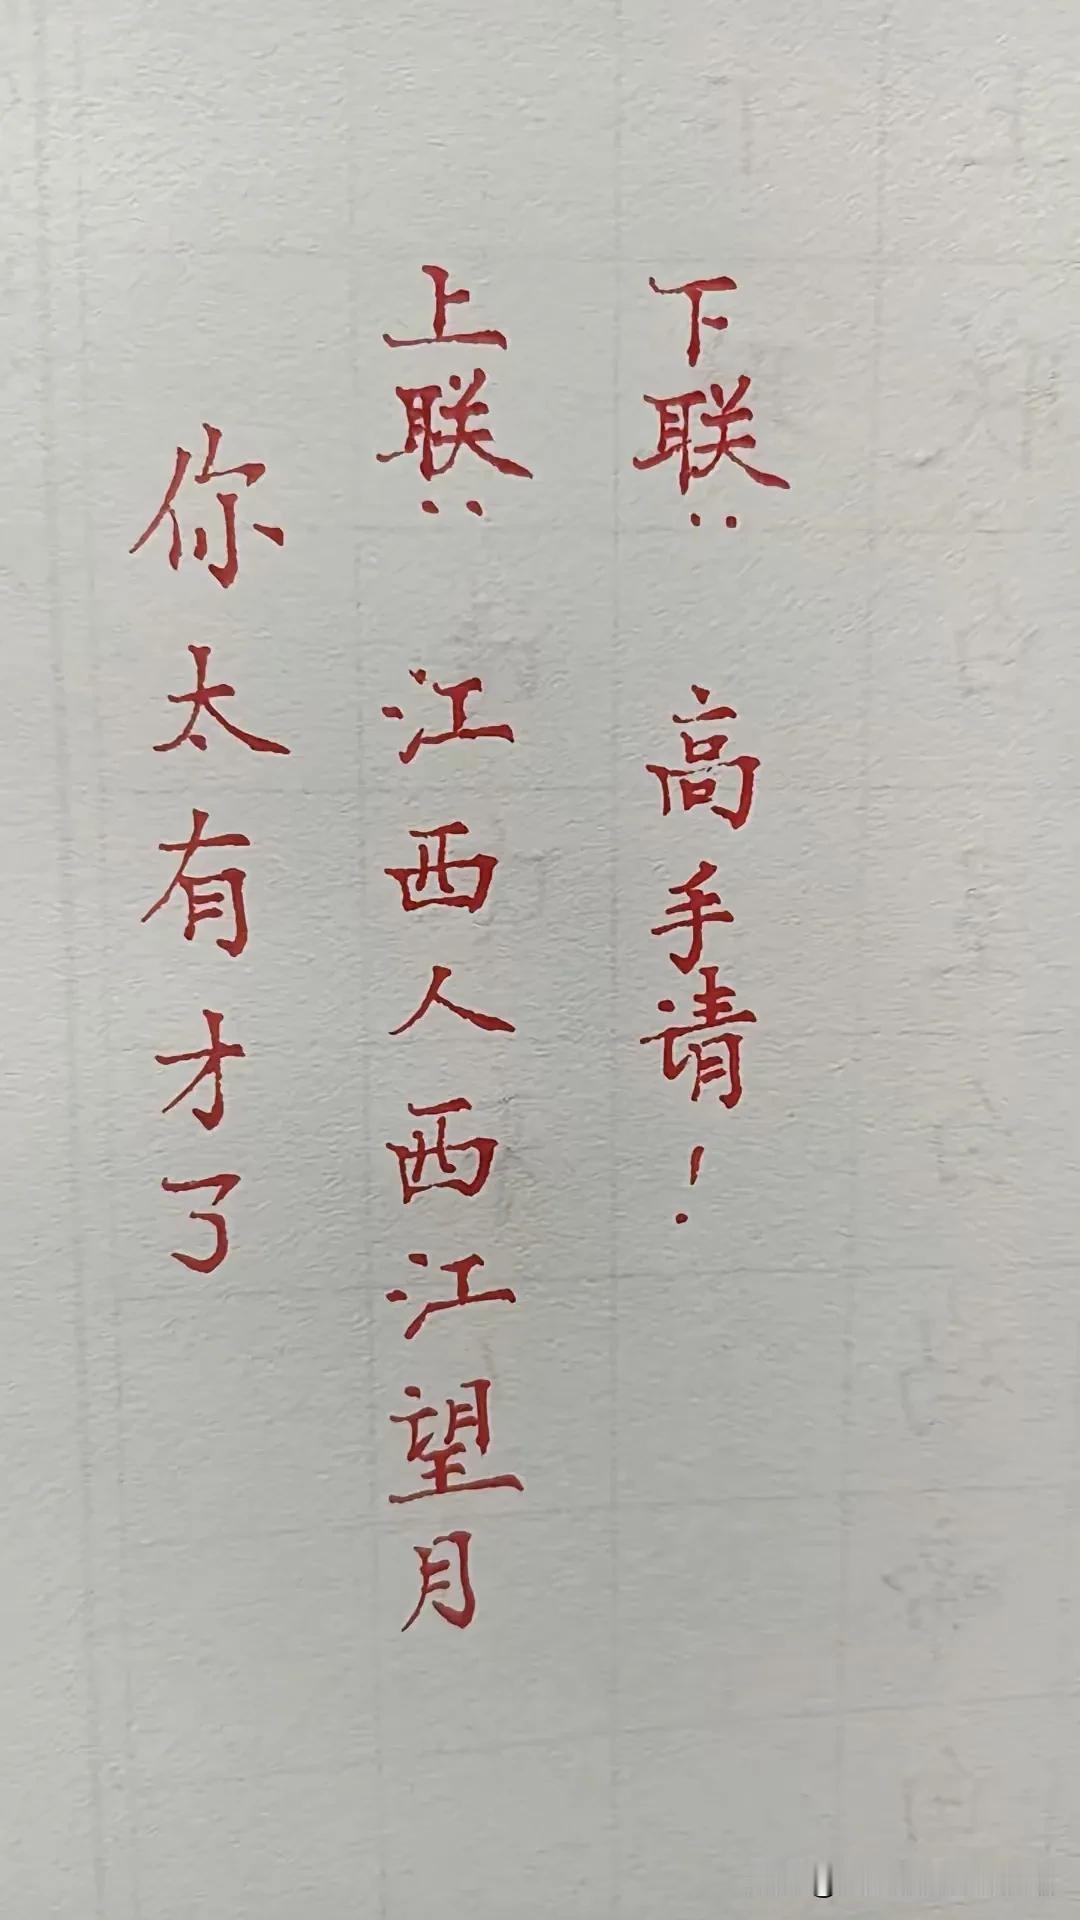 你太有才了
上联：江西人西江望月
下联：高手请！